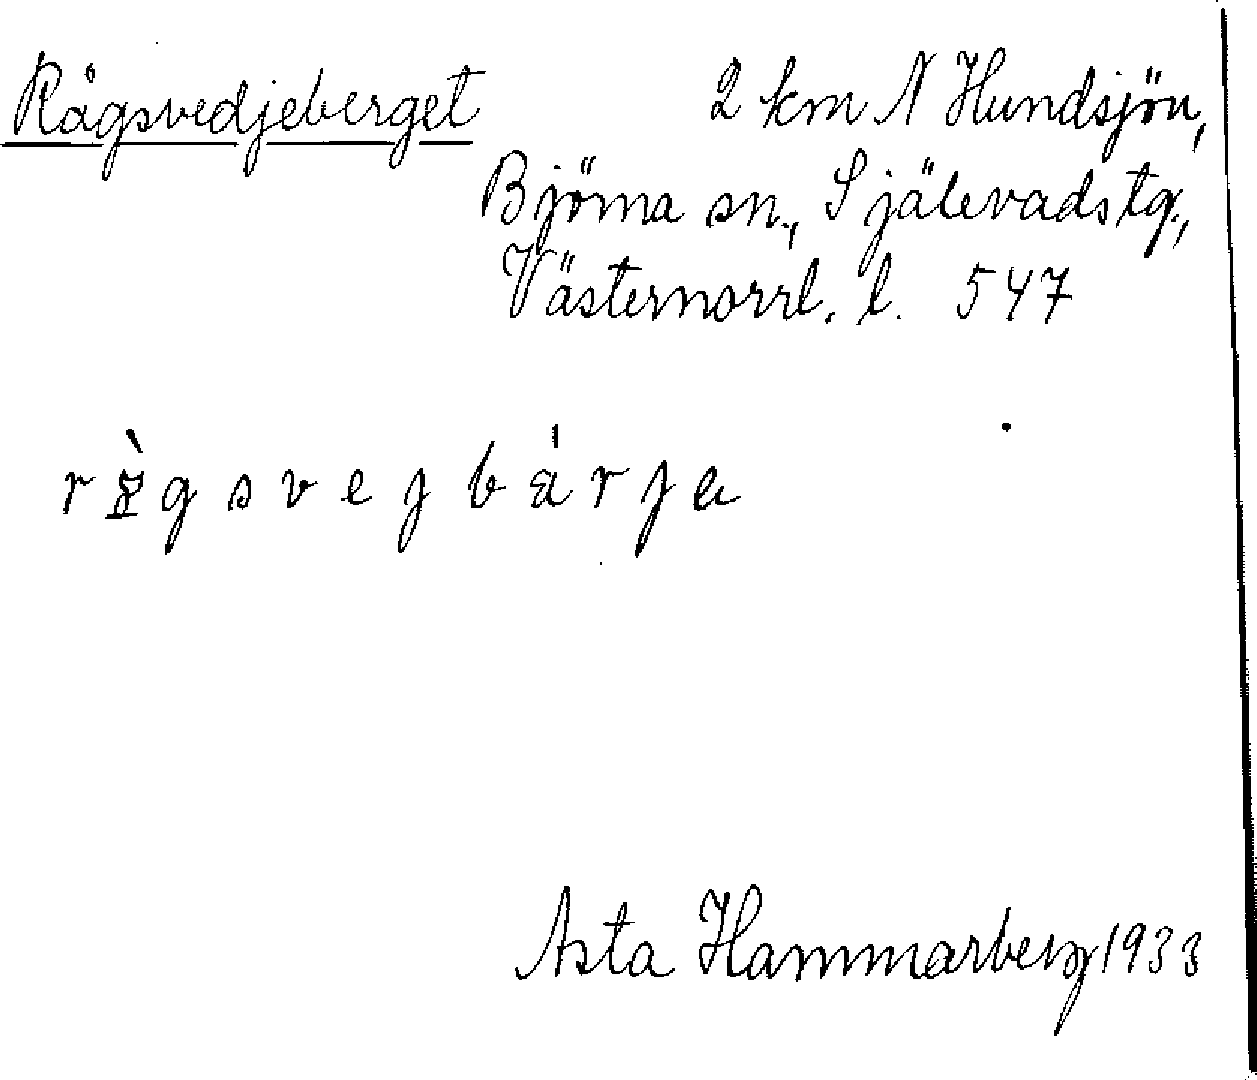 Rågsvedjeberget 2 km N Hundsjön,
Björna sn., Själevads tg.,
Västernorrl. l. 547
Asta Hammarberg 1933